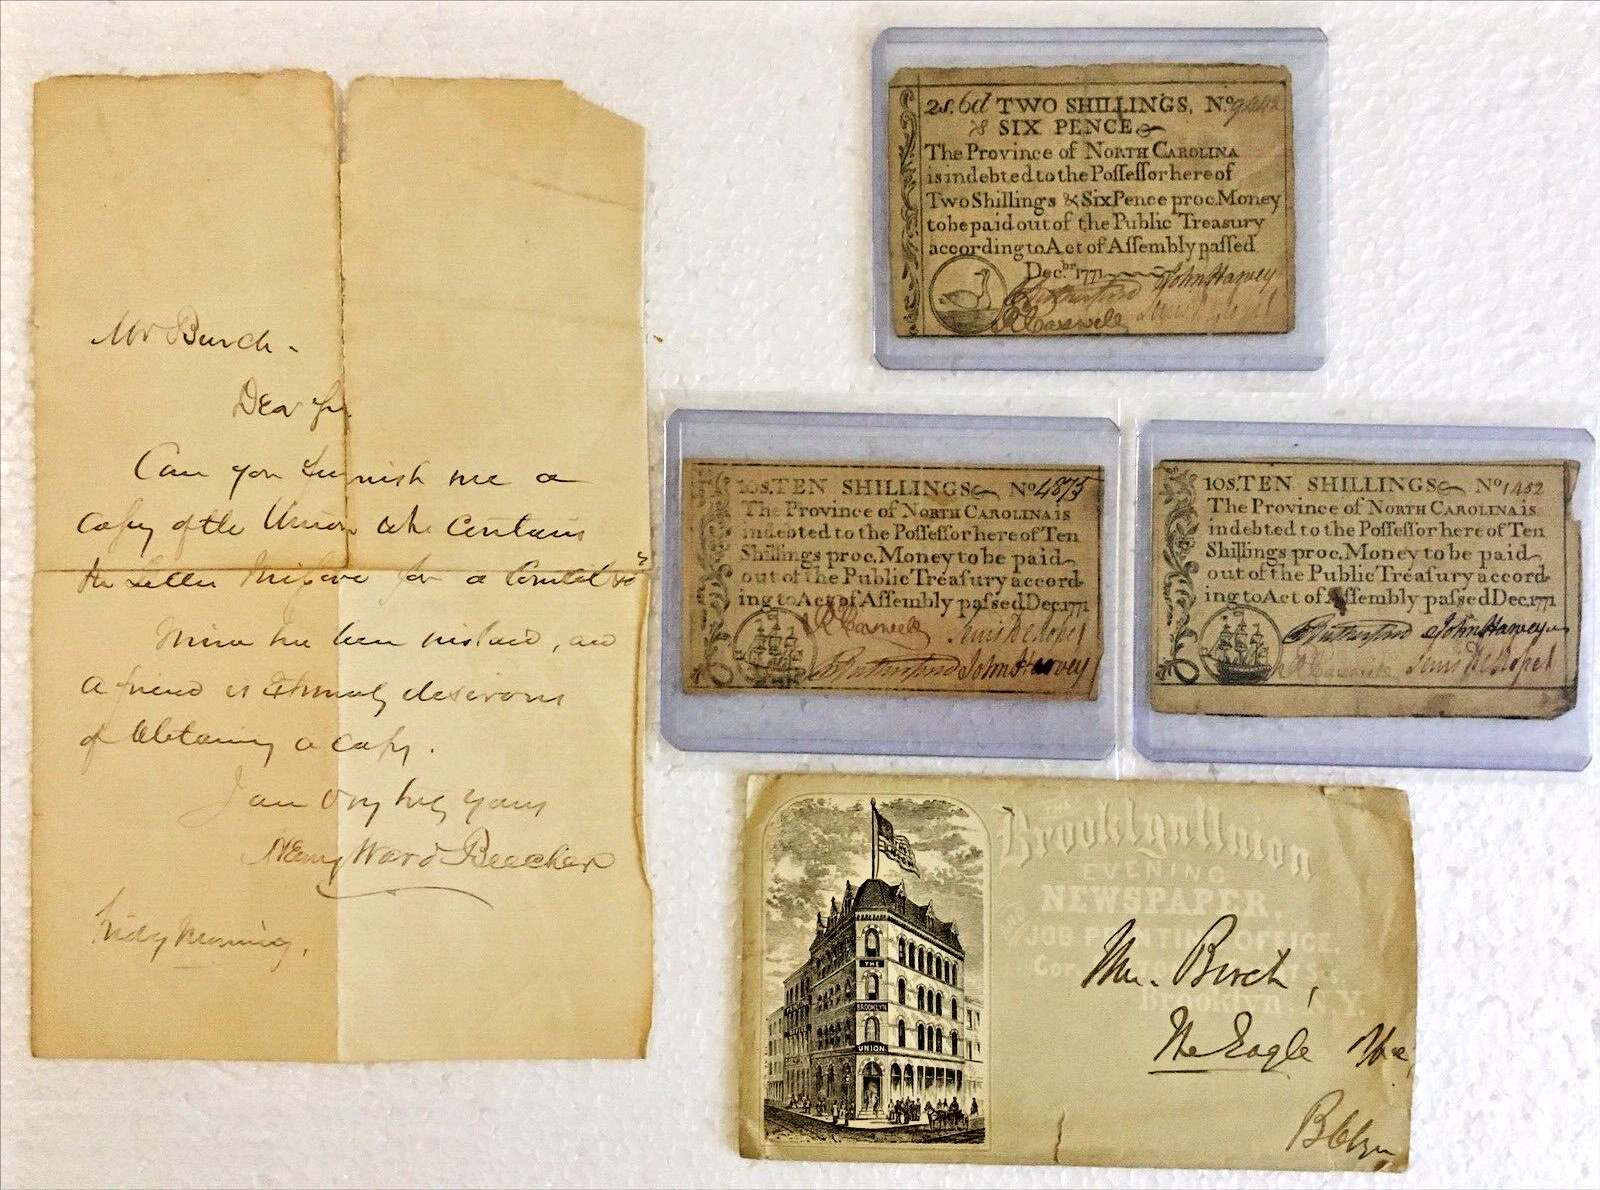 Mr Burch -
Dear Sir
Can you furnish me a
copy of the Union wh. contains
the Letter Missive for a Council
Mine has been mislaid, and
a friend is desirous
of obtaining a copy.
I am very truly yours
Henry Ward Beecher
Friday Morning.
2s.6d TWO SHILLINGS, No.
& SIX PENCE
The Province of NORTH CAROLINA
is indebted to the Poſſeſſor here of
Two Shillings & Six Pence proc. Money
to be paid out of the Public Treasury
according to Act of Aſſembly paſſed
Decbr. 1771
Rutherfurd John Harvey
R Caswell Lewis De Rosset
10s. TEN SHILLINGS No 4875
The Province of NORTH CAROLINA is
indebted to the Poſſeſſor here of Ten
Shillings proc. Money to be paid
out of the Public Treaſury accord
ing to Act of Aſſembly paſſed Dec. 1771
R Caswell Lewis De Rosset
Rutherfurd John Harvey
10s. TEN SHILLINGS No 1452
The Province of NORTH CAROLINA is
indebted to the Poſſeſſor here of Ten
Shillings proc. Money to be paid
out of the Public Treaſury accord
ing to Act of Aſſembly paſſed Dec. 1771
Rutherfurd John Harvey
R Caswell Lewis De Rosset
THE
Brooklyn Union
EVENING
NEWSPAPER
JOB PRINTING OFFICE
Cor.
Brooklyn, N.Y.
THE
BROOKLYN
UNION
Mr. Birch,
The Eagle
Bklyn